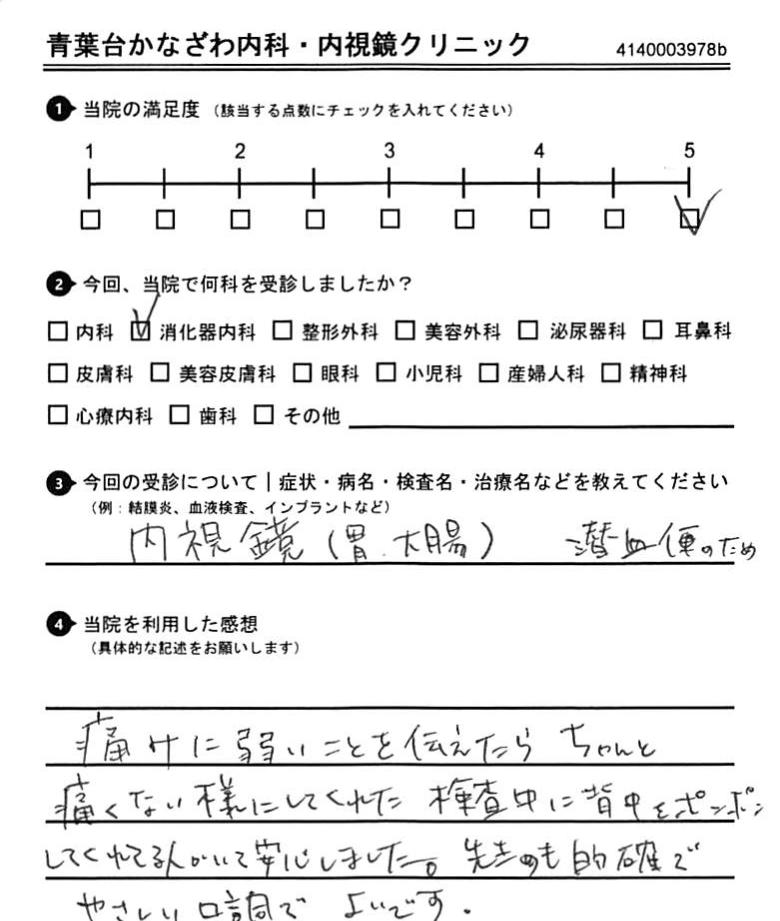 青葉台かなざわ内科・内視鏡クリニック 4140003978b
1 当院の満足度 (該当する点数にチェックを入れてください)
1 2 3 4 5
2 今回、当院で何科を受診しましたか?
内科 消化器内科 整形外科 美容外科 泌尿器科 耳鼻科
皮膚科 美容皮膚科 眼科 小児科 産婦人科 精神科
心療内科 歯科 その他
3 今回の受診について | 症状・病名・検査名・治療名などを教えてください
(例:結膜炎、血液検査、インプラントなど)
内視鏡(胃.大腸) 潜血便のため
4 当院を利用した感想
(具体的な記述をお願いします)
痛みに弱いことを伝えたら ちゃんと
痛くない様にしてくれた 検査中に背中をポンポン
してくれてる人がいて安心しました。先生も的確で
やさしい口調で よいです.